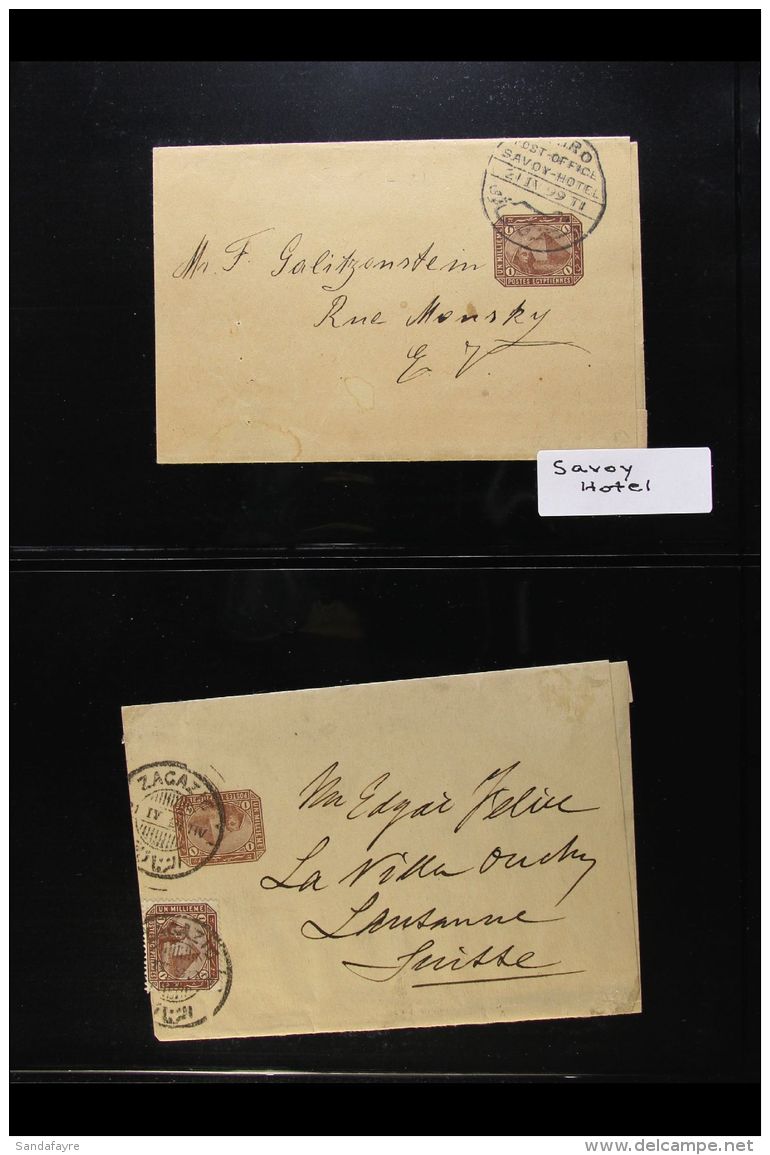 POST-OFFICE
SAVOY-HOTEL
21 IV 99 T1
UN MILLIEME
1 1
POSTES EGYPTIENNES
Mr. F. Galitzenstein
Rue Monsky
E. V.
Savoy
Hotel
ZAGAZ
IV
POSTES
UN MILLIEME
1
UN MILLIEME
Mr Edgar Felice
La Villa Ouchy
Lausanne
Suisse
Sandafayre
www.delcampe.net